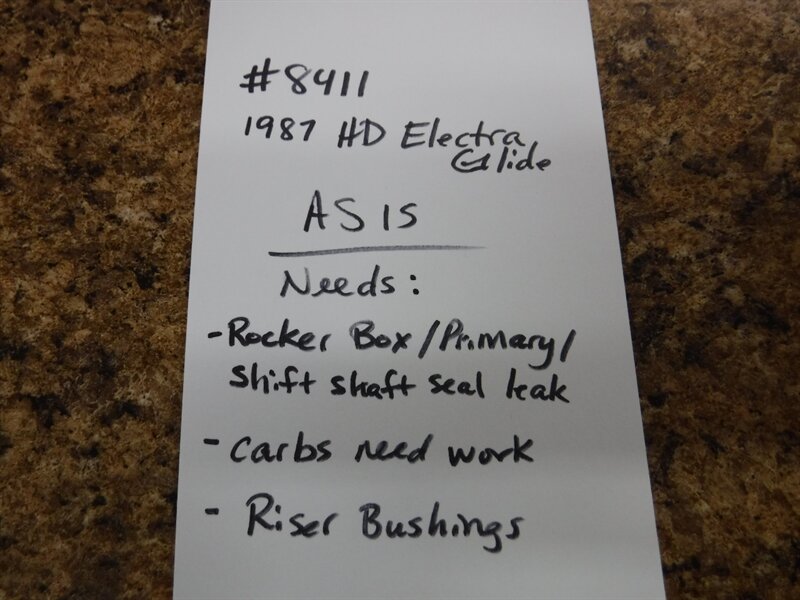 #8411
1987 HD Electra
Glide
AS IS
Needs:
- Rocker Box/Primary/
shift shaft seal leak
- carbs need work
- Riser Bushings